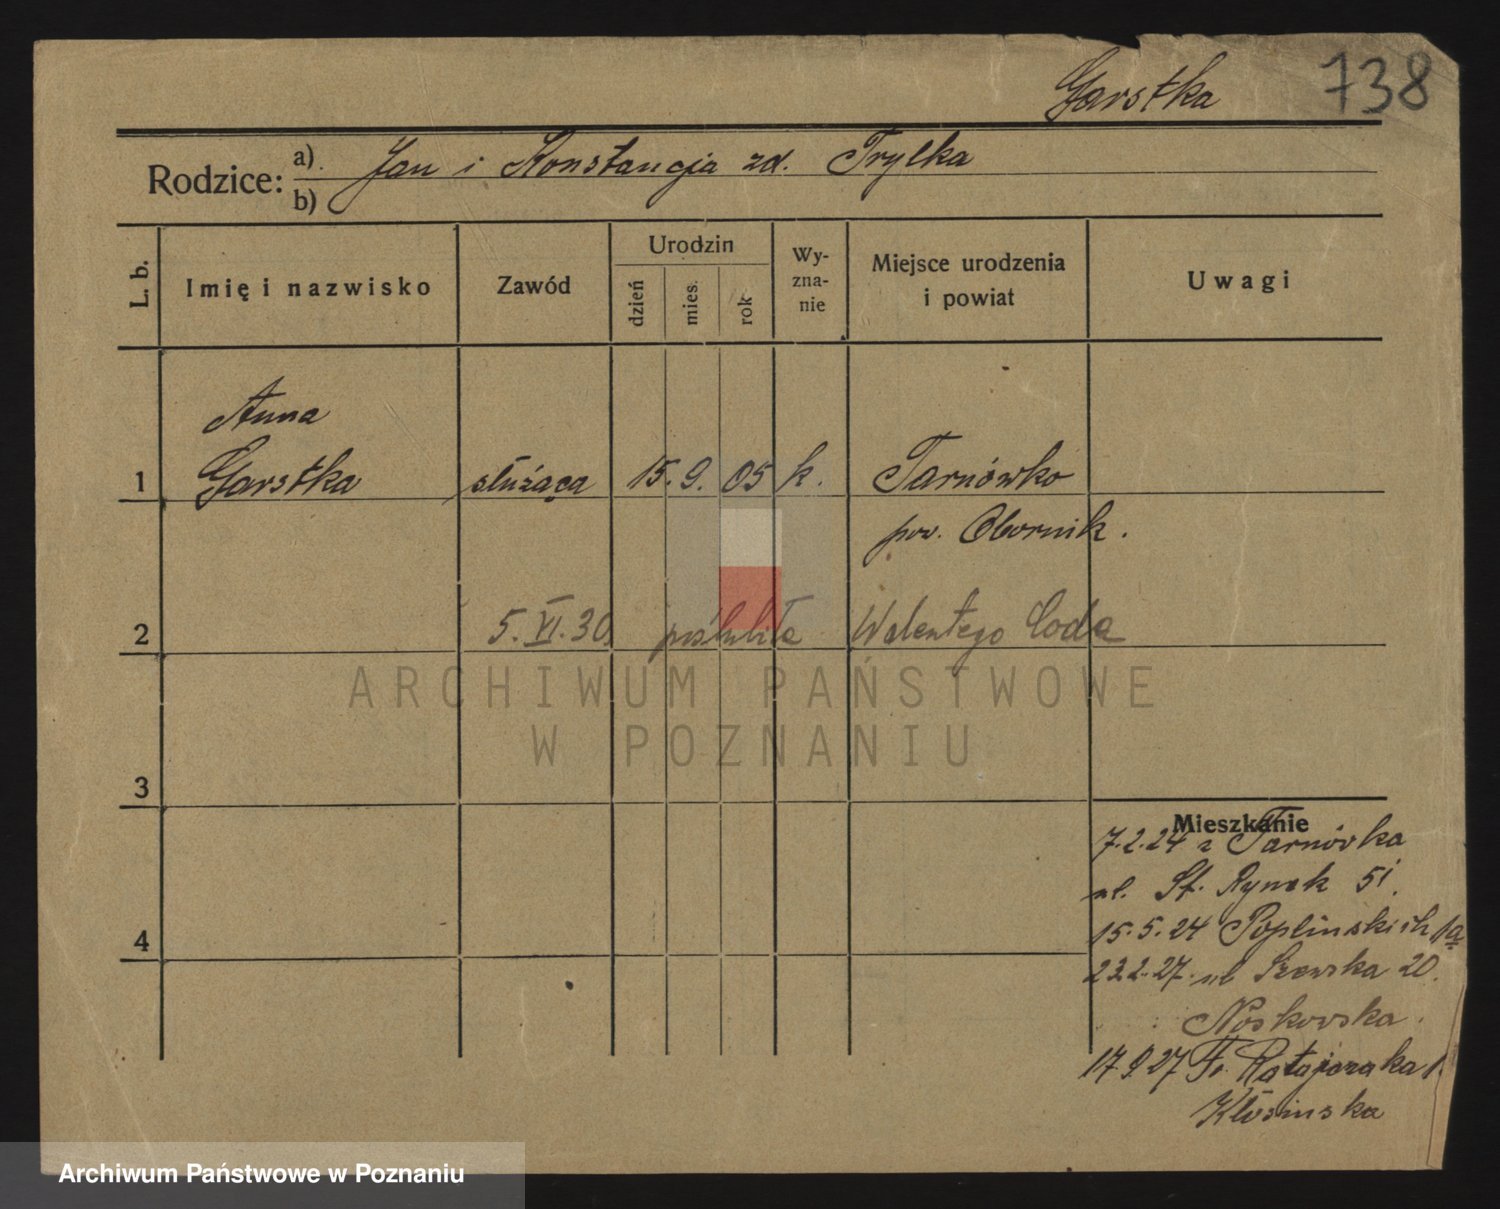 Garstka 738
Rodzice: a) Jan i Konstancja zd. Trylka
b)
L. b. Imię i nazwisko Zawód Urodzin dzień mies. rok Wy-zna-nie Miejsce urodzenia i powiat Uwagi
Anna
1 Garstka służąca 15. 9. 05 k. Tarnówko
pow. Obornik.
2 5. VI. 30 poślubiła Walentego Coda
ARCHIWUM PAŃSTWOWE
W POZNANIU
3
Mieszkanie
7.2.24 z Tarnówka
ul. St. Rynek 51.
4 15.5.24 Poplińskich 1a
23.2.27. ul Szewska 20.
Noskowska.
17.9.27 Fr. Ratajczaka
Kłosinska
Archiwum Państwowe w Poznaniu